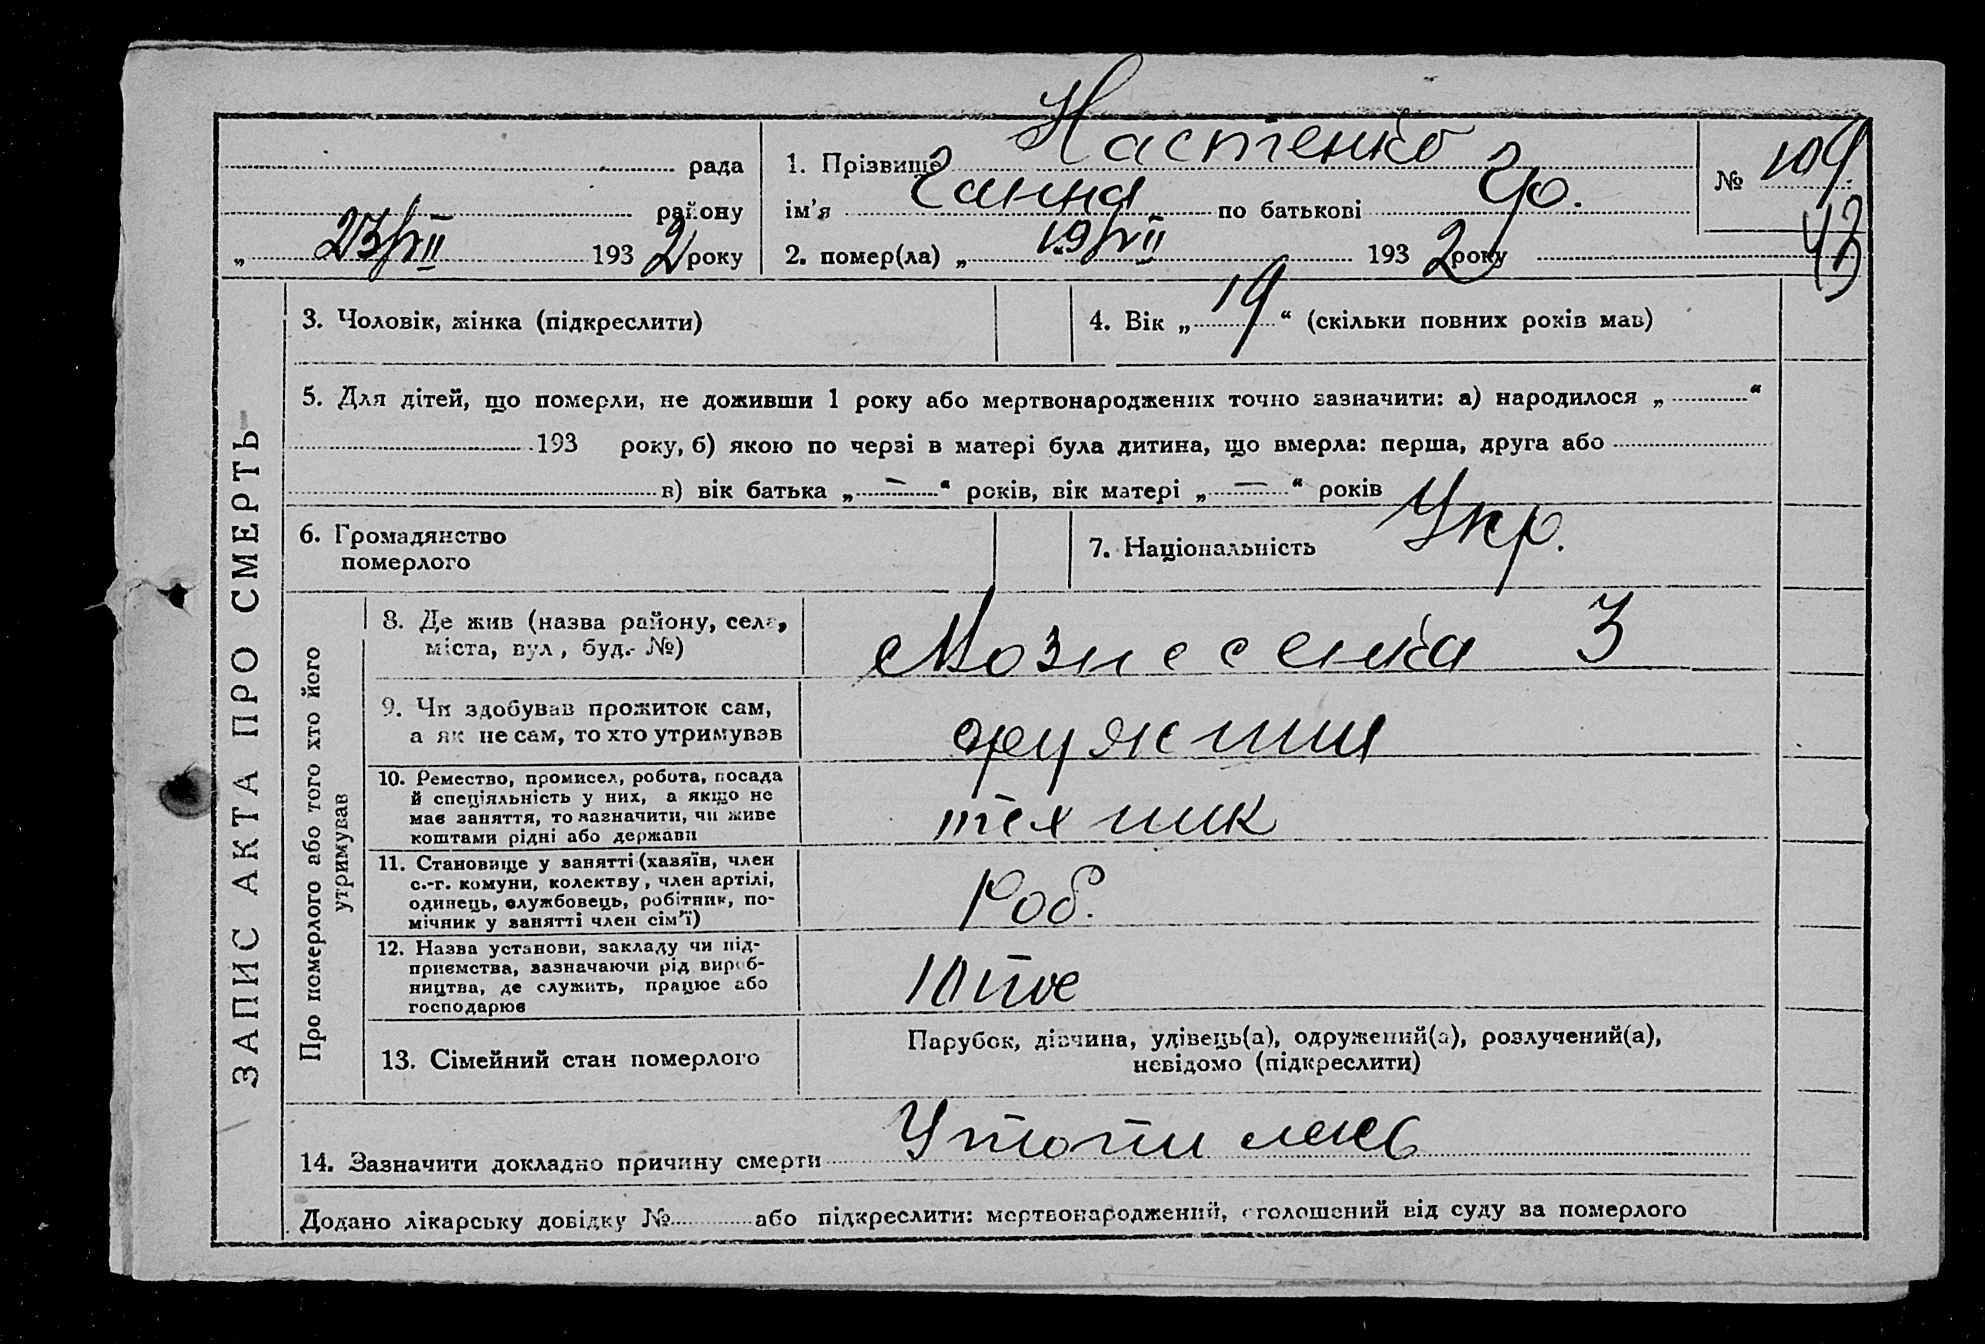 Настенко
рада
1. Прізвище
№ 109
району
ім'я Ганна по батькові Гр.
43
23/VII 1932 року
2. помер(ла) „ 19/VII 1932 року
ЗАПИС АКТА ПРО СМЕРТЬ
3. Чоловік, жінка (підкреслити)
4. Вік „ 19 “ (скільки повних років мав)
5. Для дітей, що померли, не доживши 1 року або мертвонароджених точно зазначити: а) народилося „ “
193 року, б) якою по черзі в матері була дитина, що вмерла: перша, друга або
в) вік батька „ — “ років, вік матері „ — “ років
6. Громадянство
померлого
7. Національність Укр.
Про померлого або того хто його
утримував
8. Де жив (назва району, села,
міста, вул, буд.- №)
Вознесенка 3
9. Чи здобував прожиток сам,
а як не сам, то хто утримував
дружина
10. Ремество, промисел, робота, посада
й спеціяльність у них, а якщо не
має заняття, то зазначити, чи живе
коштами рідні або держави
техник
11. Становище у занятті (хазяїн, член
с.-г. комуни, колективу, член артілі,
одинець, службовець, робітник, по-
мічник у занятті член сім'ї)
Роб.
12. Назва установи, закладу чи під-
приємства, зазначаючи рід вироб-
ництва, де служить, працює або
господарює
13. Сімейний стан померлого
Парубок, дівчина, удівець(а), одружений(а), розлучений(а),
невідомо (підкреслити)
14. Зазначити докладно причину смерти Утопилась
Додано лікарську довідку № або підкреслити: мертвонароджений, оголошений від суду за померлого